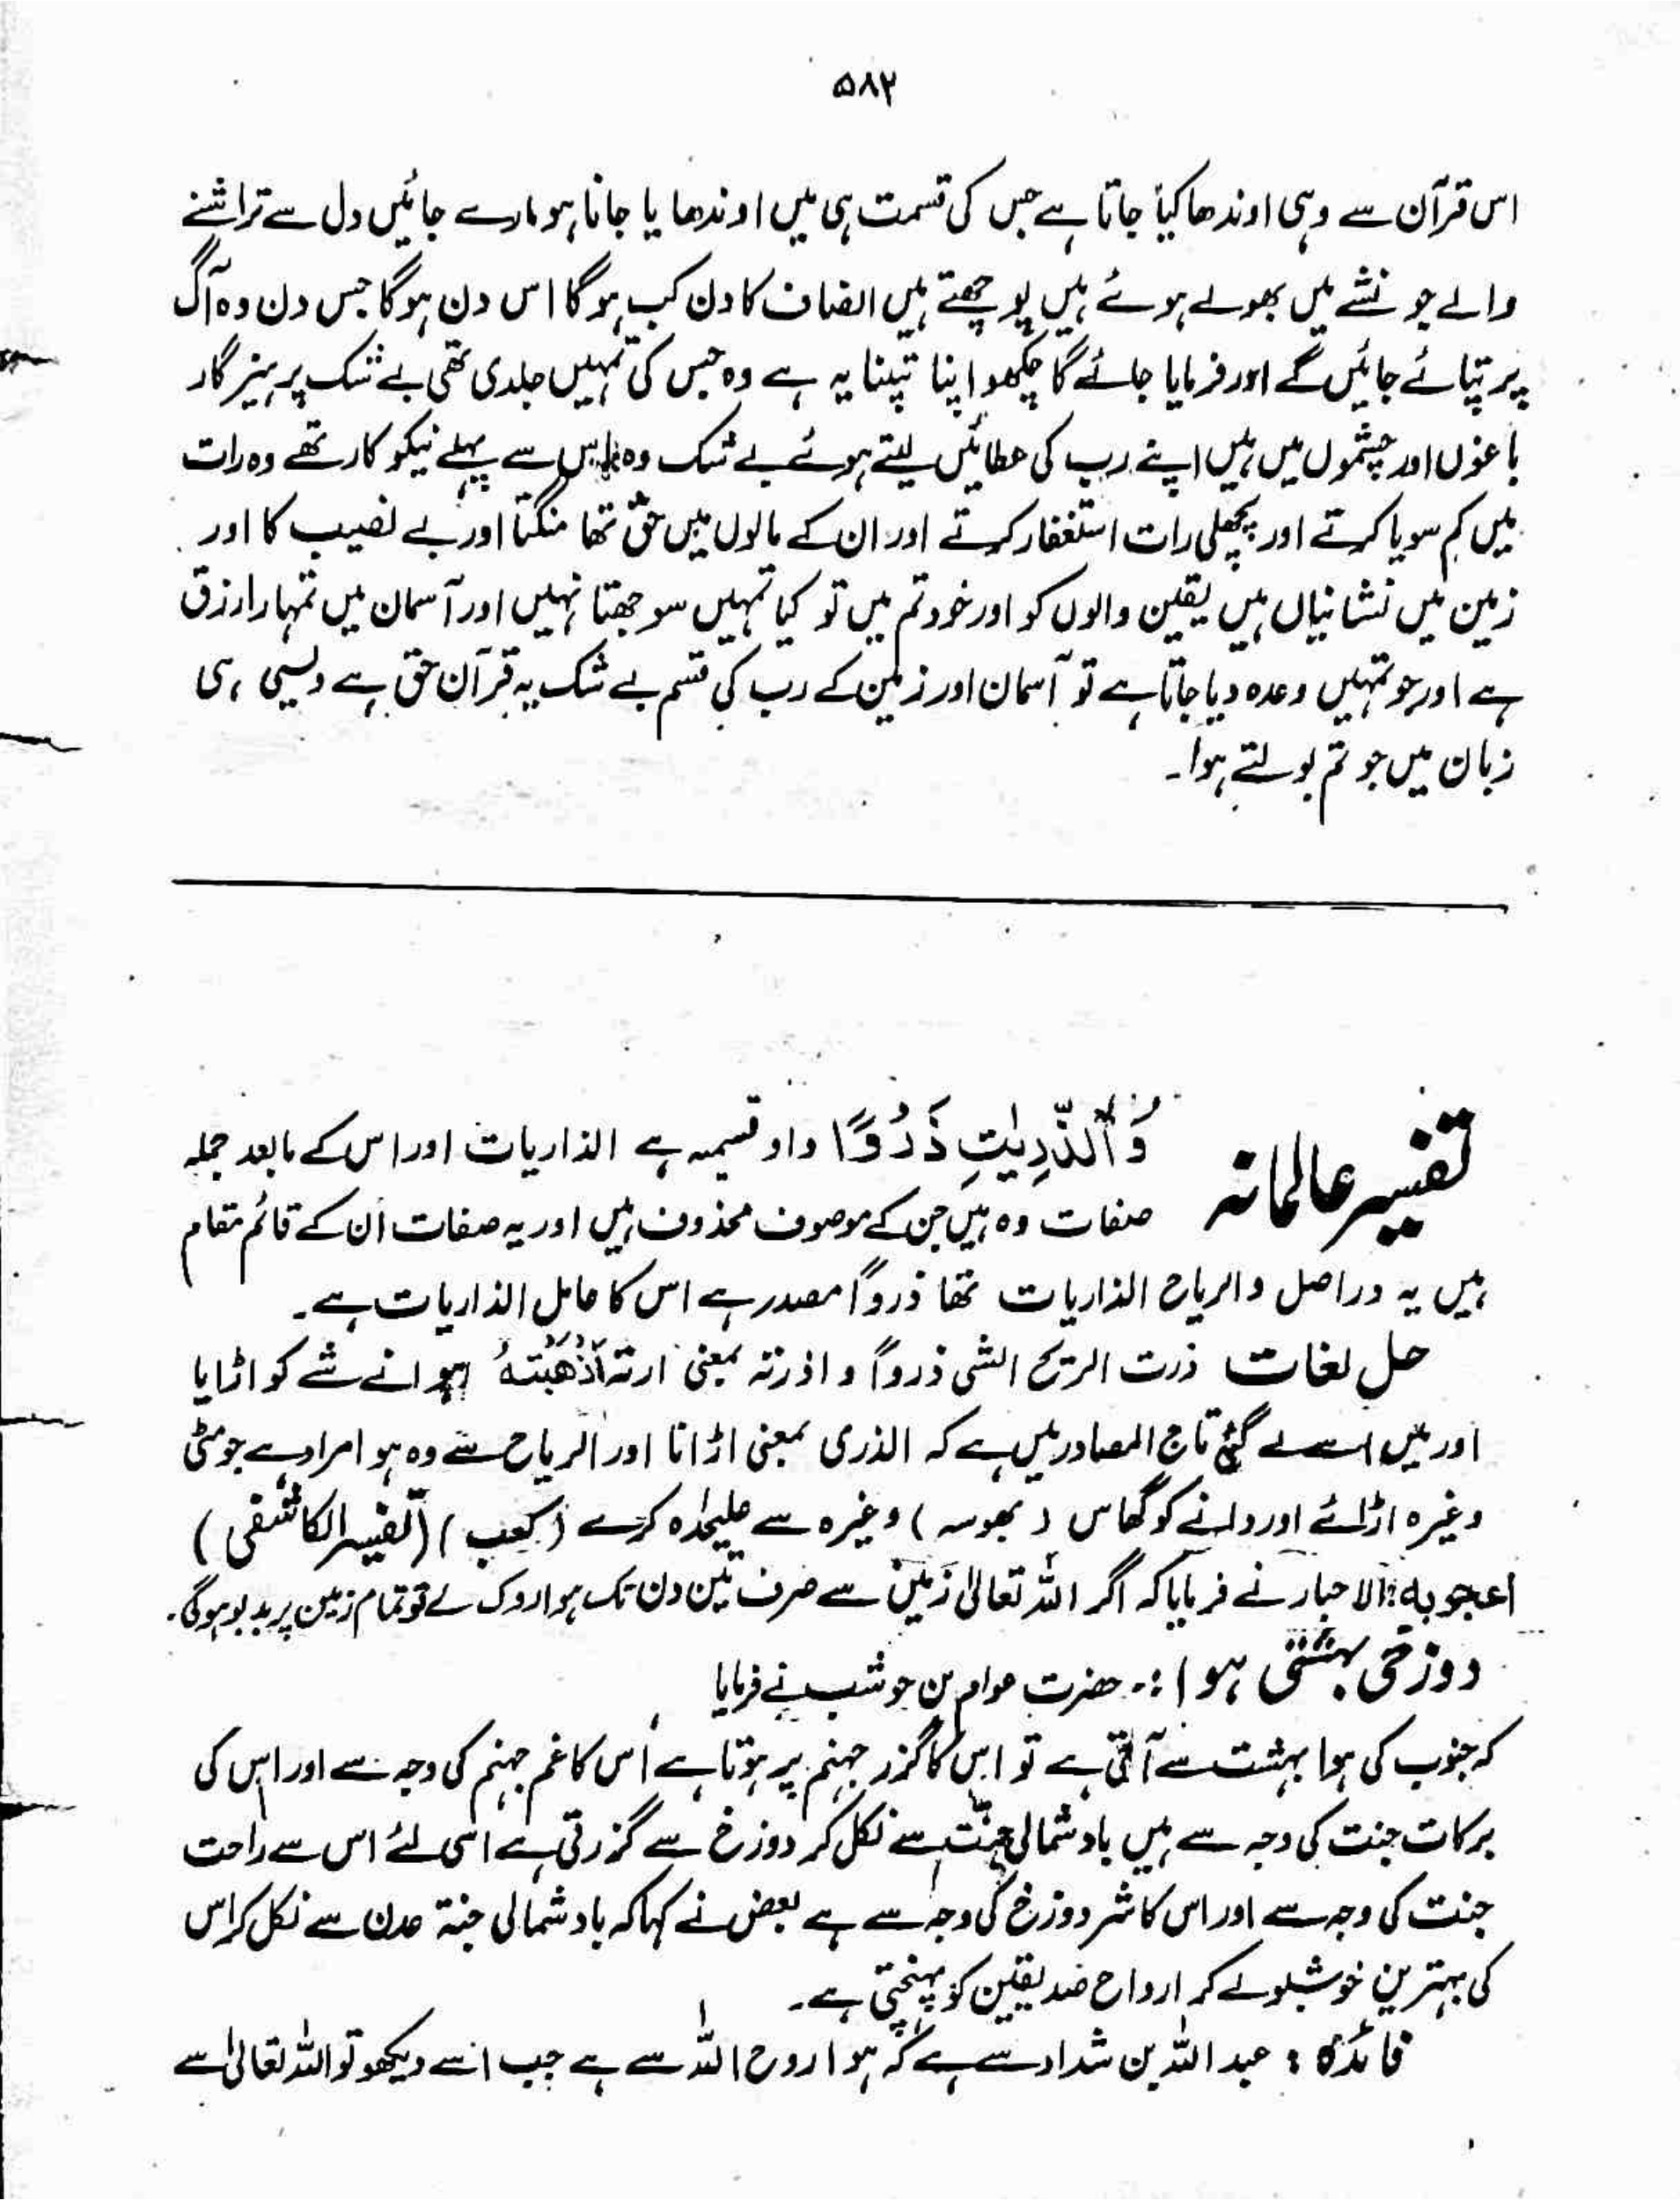 ۵۸۲
اس قرآن سے وہی اوندھا کیا جاتا ہے جس کی قسمت ہی میں اوندھایا جانا ہو مارے جائیں دل سے تراشنے
والے جو نشے میں بھولے ہوئے ہیں پوچھتے ہیں انصاف کا دن کب ہوگا اس دن ہوگا جس دن وہ آگ
پر تپائے جائیں گے اور فرمایا جائے گا چکھو اپنا تپنا یہ ہے وہ جس کی تمہیں جلدی تھی بے شک پرہیزگار
باغوں اور چشموں میں ہیں اپنے رب کی عطائیں لیتے ہوئے بے شک وہ اس سے پہلے نیکو کار تھے وہ رات
میں کم سویا کرتے اور پچھلی رات استغفار کرتے اور ان کے مالوں میں حق تھا منگتا اور بے نصیب کا اور
زمین میں نشانیاں ہیں یقین والوں کو اور خود تم میں تو کیا تمہیں سوجھتا نہیں اور آسمان میں تمہارا رزق
ہے اور جو تمہیں وعدہ دیا جاتا ہے تو آسمان اور زمین کے رب کی قسم بے شک یہ قرآن حق ہے ویسی ہی
زبان میں جو تم بولتے ہوا۔
تفسیر عالمانہ
وَالذّٰرِیٰتِ ذَرْوًا واو قسمیہ ہے الذاریات اور اس کے مابعد جملہ
صفات وہ ہیں جن کے موصوف محذوف ہیں اور یہ صفات ان کے قائم مقام
ہیں یہ دراصل والریاح الذاریات تھا ذرواً مصدر ہے اس کا عامل الذاریات ہے۔
حل لغات ذرت الریح الشی ذرواً و اذرتہ بمعنی ارتہ اَذْهَبَتْهُ ہوا نے شے کو اڑایا
اور میں اسے لے گئی تاج المصادر میں ہے کہ الذری بمعنی اڑانا اور الریاح سے وہ ہوا مراد ہے جو مٹی
وغیرہ اڑائے اور دانے کو گھاس (بھوسہ) وغیرہ سے علیحدہ کرے (کعب) (تفسیر الکاشفی)
اعجوبہ: الاحبار نے فرمایا کہ اگر اللہ تعالیٰ زمین سے صرف تین دن تک ہوا روک لے تو تمام زمین پر بدبو ہوگی۔
دوزخی بہشتی ہوا :۔ حضرت عوام بن حوشب نے فرمایا
کہ جنوب کی ہوا بہشت سے آتی ہے تو اس کا گزر جہنم پر ہوتا ہے اُس کا غم جہنم کی وجہ سے اور اس کی
برکات جنت کی وجہ سے ہیں باد شمالی جنت سے نکل کر دوزخ سے گزرتی ہے اسی لئے اس سے راحت
جنت کی وجہ سے اور اس کا شر دوزخ کی وجہ سے ہے بعض نے کہا کہ باد شمالی جنۃ عدن سے نکل کر اس
کی بہترین خوشبو لے کر ارواح صدیقین کو پہنچتی ہے۔
فائدہ : عبداللہ بن شداد سے ہے کہ ہوا روح اللہ سے ہے جب اسے دیکھو تو اللہ تعالیٰ سے